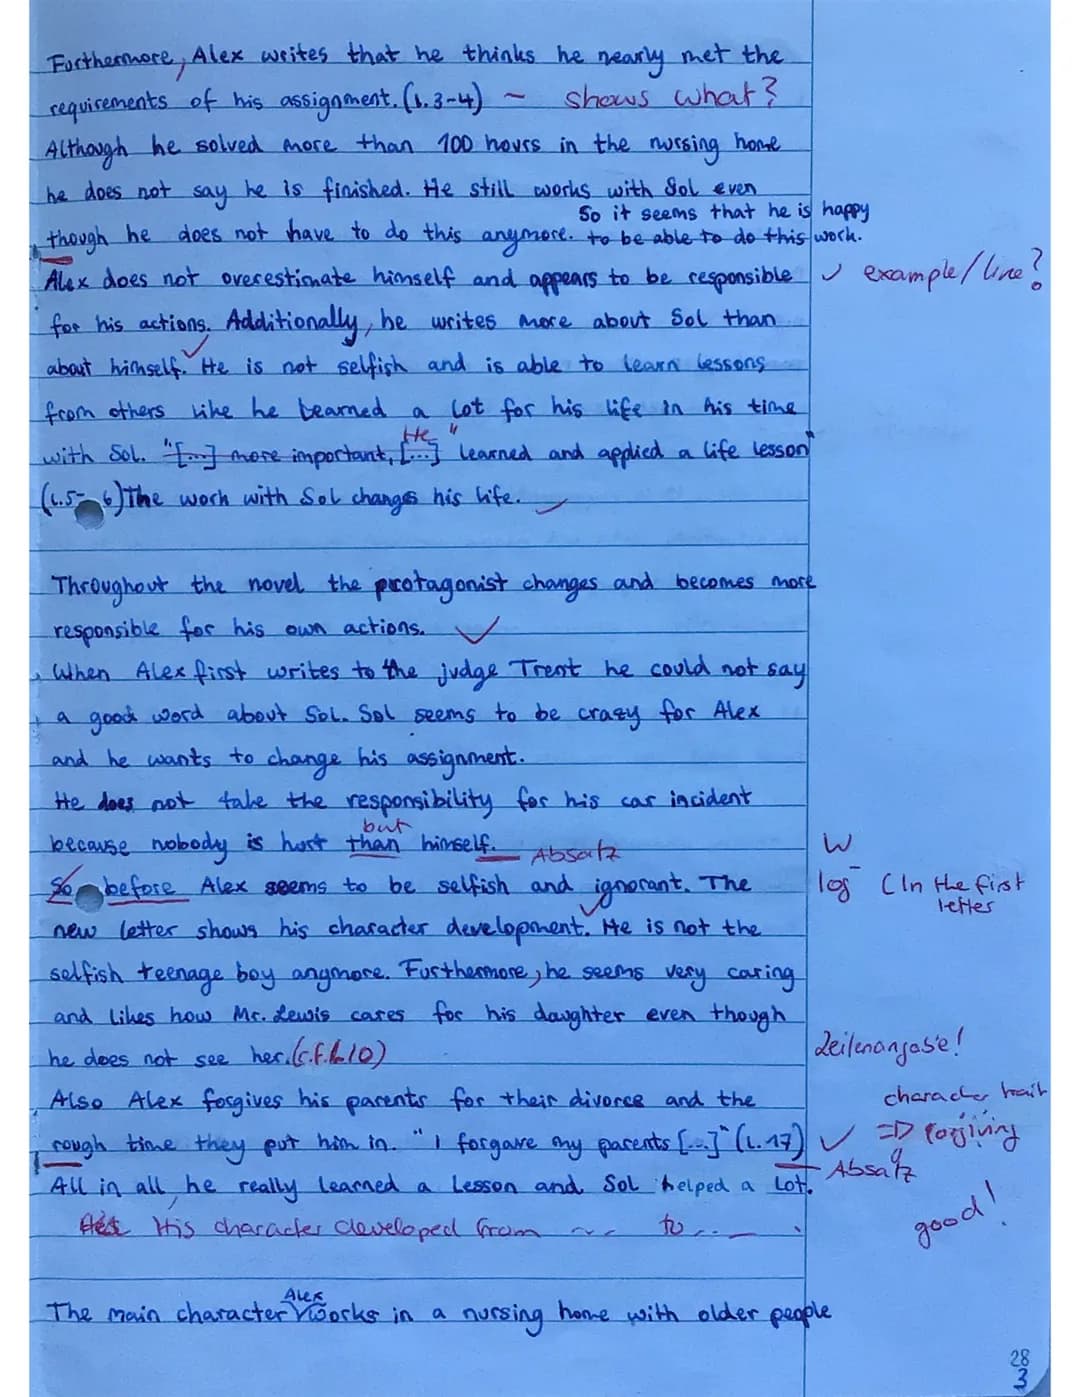 Furthermore, Alex writes that he thinks he nearly met the
requirements of his assignment. (l. 3-4) - shows what?
Although he solved more than 100 hours in the nursing home
he does not say he is finished. He still works with Sol even
So it seems that he is happy
though he does not have to do this anymore. to be able to do this work.
Alex does not overestimate himself and appears to be responsible ✓ example/line?
for his actions. Additionally, he writes more about Sol than
about himself. He is not selfish and is able to learn lessons
from others like he learned a lot for his life in his time
He "
with Sol. "[...] more important, [...] learned and applied a life lesson"
(l.5-6) The work with Sol changes his life.
Throughout the novel the protagonist changes and becomes more
responsible for his own actions. ✓
When Alex first writes to the judge Trent he could not say
a good word about Sol. Sol seems to be crazy for Alex
and he wants to change his assignment.
He does not take the responsibility for his car incident
but
because nobody is hurt than himself. Absatz W
So before Alex seems to be selfish and ignorant. The log (In the first
letter
new letter shows his character development. He is not the
selfish teenage boy anymore. Furthermore, he seems very caring
and likes how Mr. Lewis cares for his daughter even though
he does not see her. (c.f. l. 10) Zeilenangabe!
Also Alex forgives his parents for their divorce and the character trait
rough time they put him in. "I forgave my parents [...]" (l. 17) ✓ => forgiving
Absatz
All in all, he really learned a Lesson and Sol helped a lot.
His character developed from ... to ... . good!
Alex
The main character works in a nursing home with older people
28
3